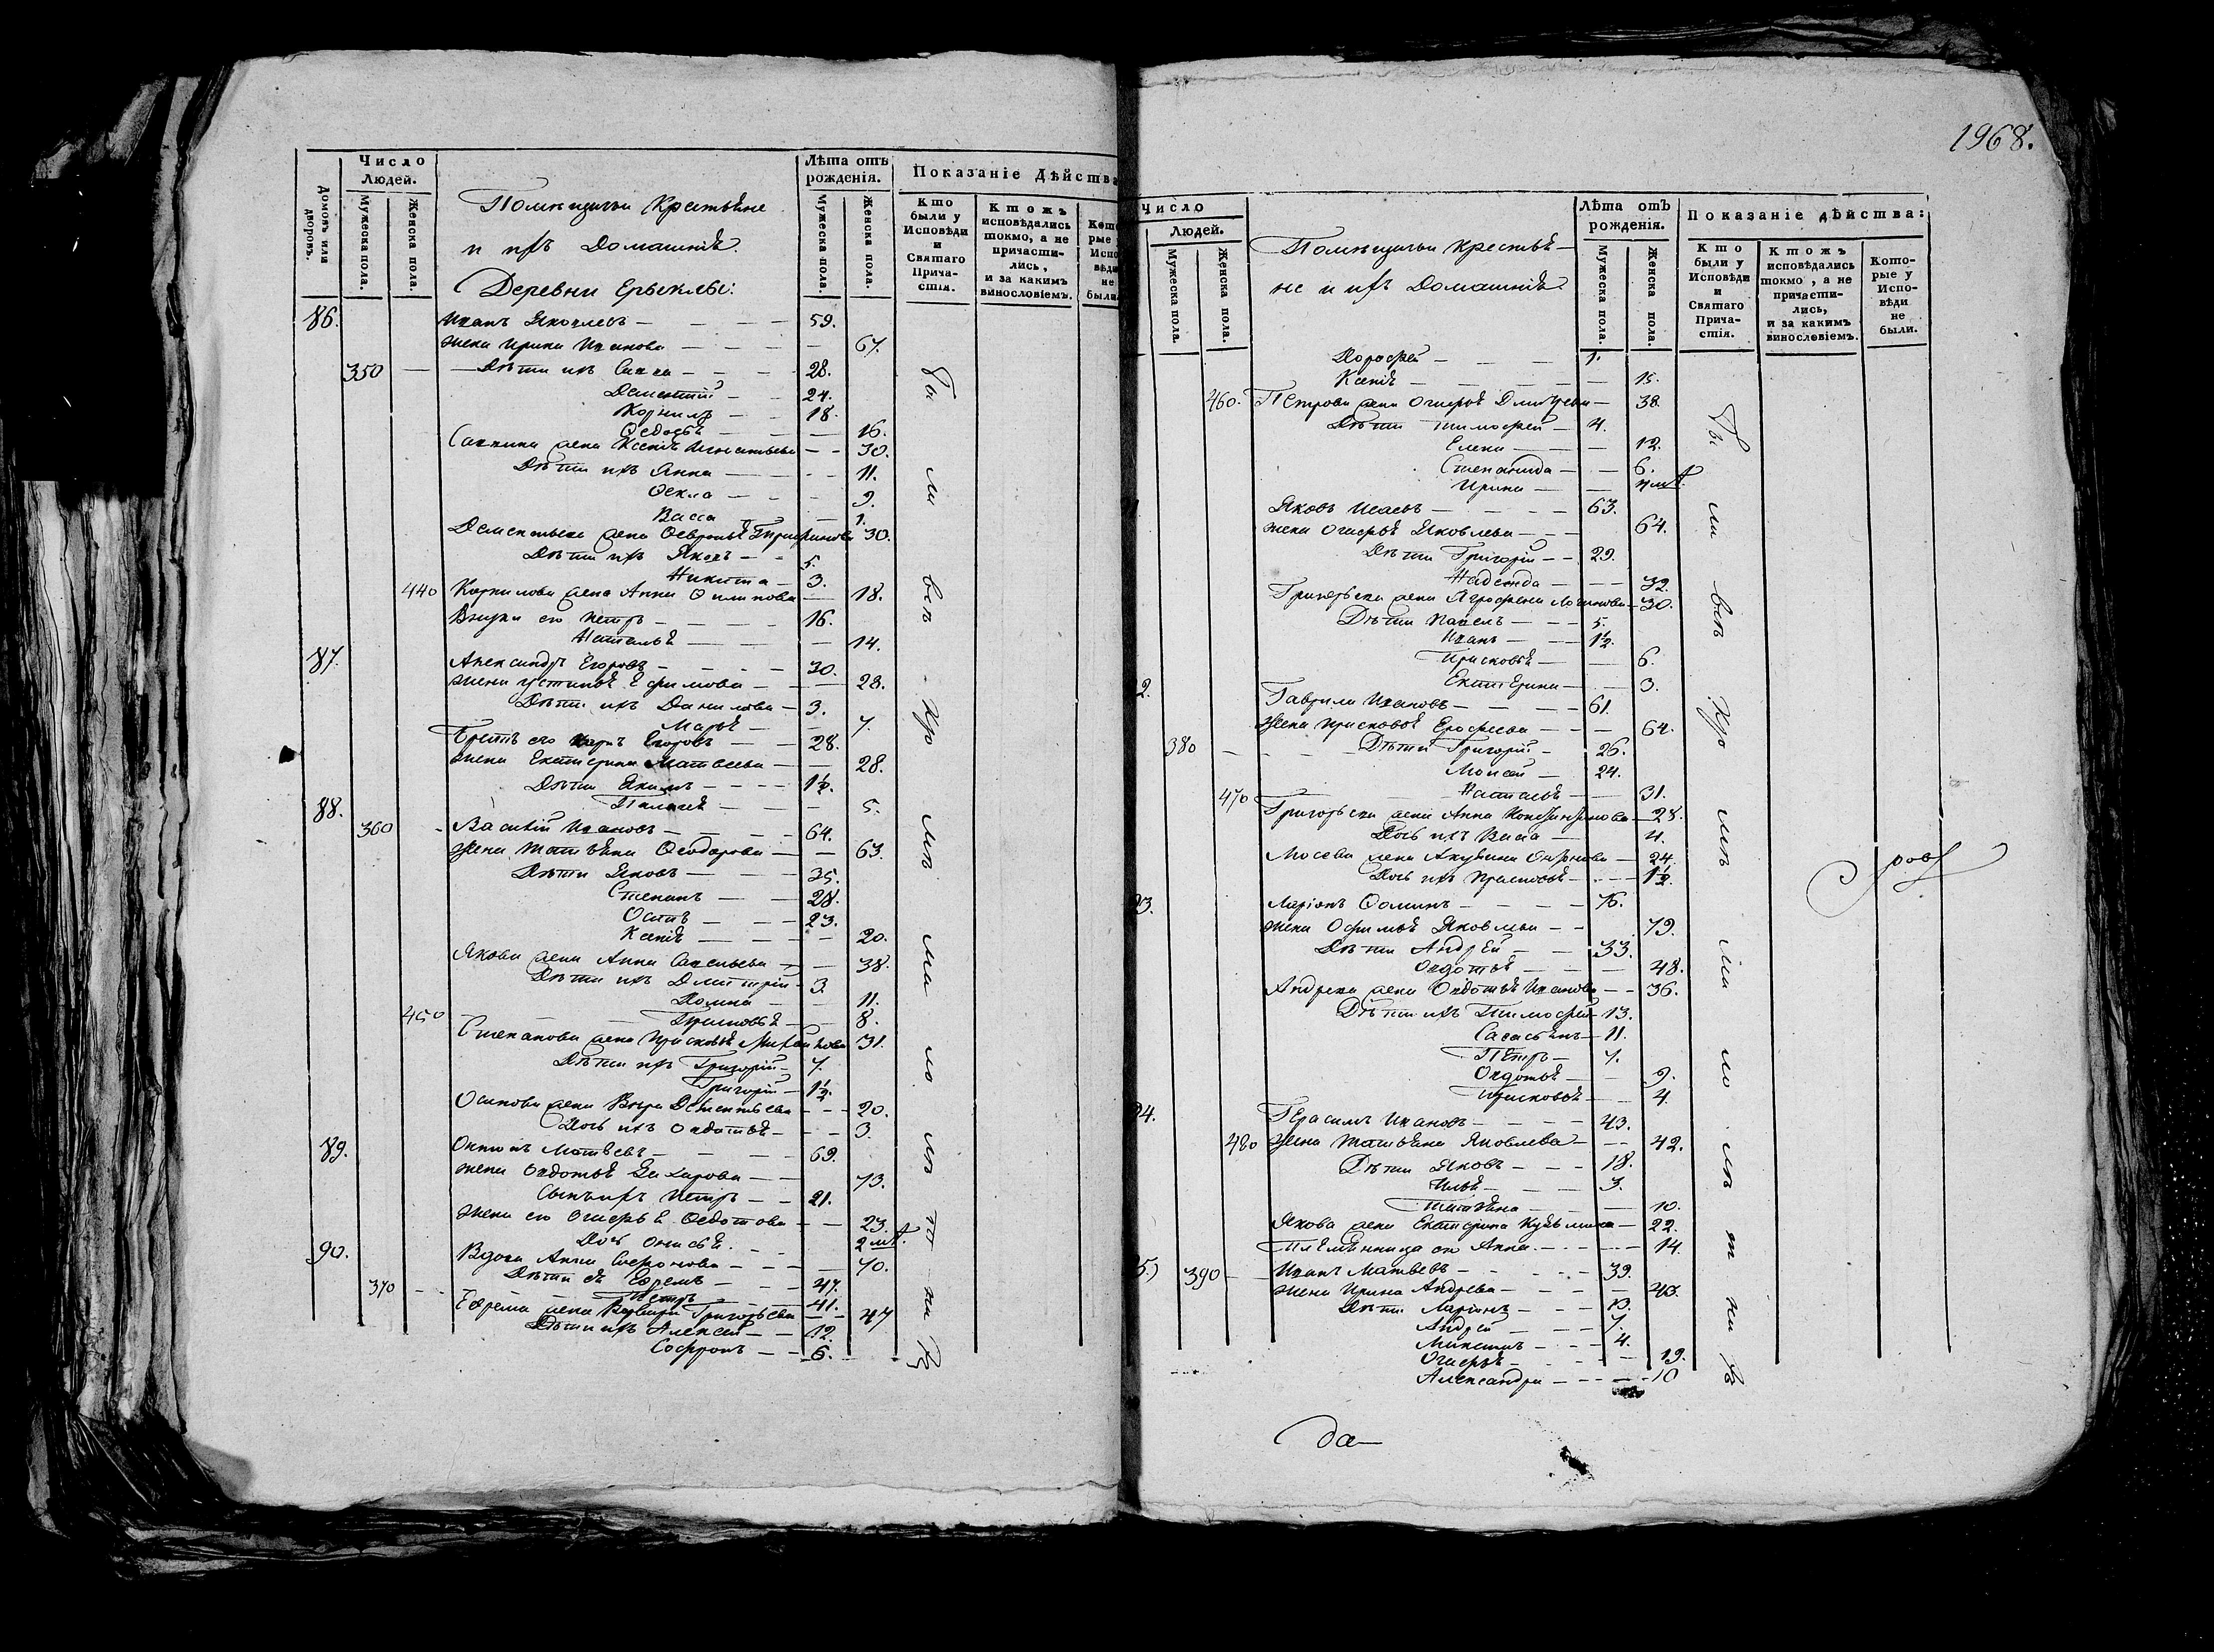 Домовъ или дворовъ.
Число Людей.
Мужеска пола.
Женска пола.
Помѣщичьи Крестьяне
и ихъ Домашнiѣ
Деревни Ерыклы:
Лѣта отъ рожденія.
Мужеска пола.
Женска пола.
Показаніе Дѣйства
Кто были у Исповѣди и Святаго Причастія.
Ктожъ исповѣдались токмо, а не причастились, и за какимъ винословіемъ.
86. Иванъ Яковлевъ — 59.
жена Ирина Иванова — 67.
350 — Дѣти ихъ Савва — 28.
Дементій — 24.
Корнилъ — 18.
Ѳедосьѣ — 16.
Саввина жена Ксеніѣ Игнатьева — 30.
Дѣти ихъ Анна — 11.
Ѳекла — 9.
Васса — 1.
Дементьева жена Ѳевроньѣ Трифонова 30.
Дѣти ихъ Яковъ — 5.
Никита — 3.
440 Корнилова жена Анна Филипова — 18.
Внуки его Петръ — 16.
Натальѣ — 14.
87. Александръ Егоровъ — 30.
жена Устиньѣ Ефимова — 28.
Дѣти ихъ Данилова — 3.
Марьѣ — 7.
Братъ его Егоровъ — 28.
жена Екатерина Матвеева — 28.
Дѣти Якимъ — 1½.
Палагеѣ — 5.
88. 360 Василій Ивановъ — 64.
жена Татьяна Ѳеодорова — 63.
Дѣти Яковъ — 35.
Степанъ — 28.
Осипъ — 23.
Ксеніѣ — 20.
Якова жена Анна Савельева — 38.
Дѣти ихъ Дмитрій — 3.
Домна — 11.
450 — Прасковьѣ — 8.
Степанова жена Прасковьѣ Михайлова 31.
Дѣти ихъ Григорій — 7.
Григорій — 1½.
Осипова жена Вѣра Дементьева — 20.
Дочь ихъ Овдотьѣ — 3.
89. Онтипъ Матвѣевъ — 69.
жена Овдотьѣ Захарова — 73.
Сынъ ихъ Петръ — 21.
жена его Огафьѣ Ѳедотова — 23.
Дочь Онисьѣ. — 2 мѣ.
90. Вдова Анна Софронова — 70.
Дѣти еѣ Ефремъ — 47.
370 — Петръ — 41.
Ефрема жена Варвара Григорьева — 47
Дѣти ихъ Алексей — 12.
Софронъ — 6.
1968.
Число Людей.
Мужеска пола.
Женска пола.
Помѣщичьи крестьѣ—
не и ихъ Домашнiѣ
Лѣта отъ рожденія.
Мужеска пола.
Женска пола.
Показаніе дѣйства:
Кто были у Исповѣди и Святаго Причастія.
Ктожъ исповѣдались токмо, а не причастились, и за какимъ винословіемъ.
Которые у Исповѣди не были.
Дорофей — 1.
Ксеніѣ — 15.
460. Петрова жена Огафьѣ Дмитрева — 38.
Дѣти Тимофей — 4.
Елена — 12.
Степанида — 6.
Ирина —
Яковъ Исаевъ — 63.
жена Огафьѣ Яковлева — 64.
Дѣти Григорій — 29.
Надежда — 32.
Григорьева жена Аграфена Логинова — 30.
Дѣти Павелъ — 5.
Иванъ — 1½.
Прасковьѣ — 6.
Екатерина — 3.
2. Гаврила Ивановъ — 61.
жена Прасковьѣ Ерофеева — 64.
380 — Дѣти Григорій — 26.
Моисей — 24.
470 Натальѣ — 31.
Григорьева жена Анна Константинова — 28.
Дочь ихъ Васса — 4.
Мосева жена Акулина — 24.
Дочь ихъ Прасковьѣ — 1½.
93. Ларіонъ Ѳоминъ — 76.
жена Офимьѣ Яковлева — 79.
Дѣти Андрей — 33.
Овдотьѣ — 48.
Андрева жена Овдотьѣ Иванова — 36.
Дѣти ихъ Тимофей — 13.
Савастьянъ — 11.
Петръ — 7.
Овдотьѣ — 9.
Прасковьѣ — 4.
94. Герасимъ Ивановъ — 43.
480 жена Татьяна Яковлева — 42.
Дѣти Яковъ — 18.
Ильѣ — 3.
Татьяна — 10.
Якова жена Екатерина Кузьмина — 22.
Племѣнница его Анна. — 14.
5.) 390 — Иванъ Матвѣевъ — 39.
жена Ирина Андрева — 43.
Дѣти Ларіонъ — 13.
Андрей — 7.
Микита — 4.
Огафьѣ — 19.
Александра — 10
да—